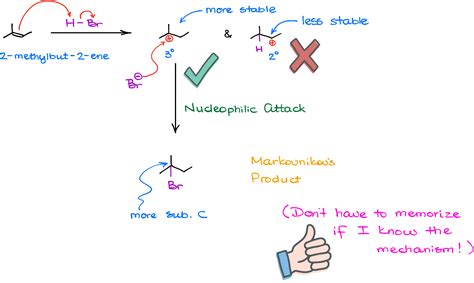 more stable
less stable
H-Br
&
H
⊕
3°
⊕
2°
2-methylbut-2-ene
Br⊖
Nucleophilic Attack
Br
Markovnikov's
Product
more sub. C
(Don't have to memorize
if I know the
mechanism!)